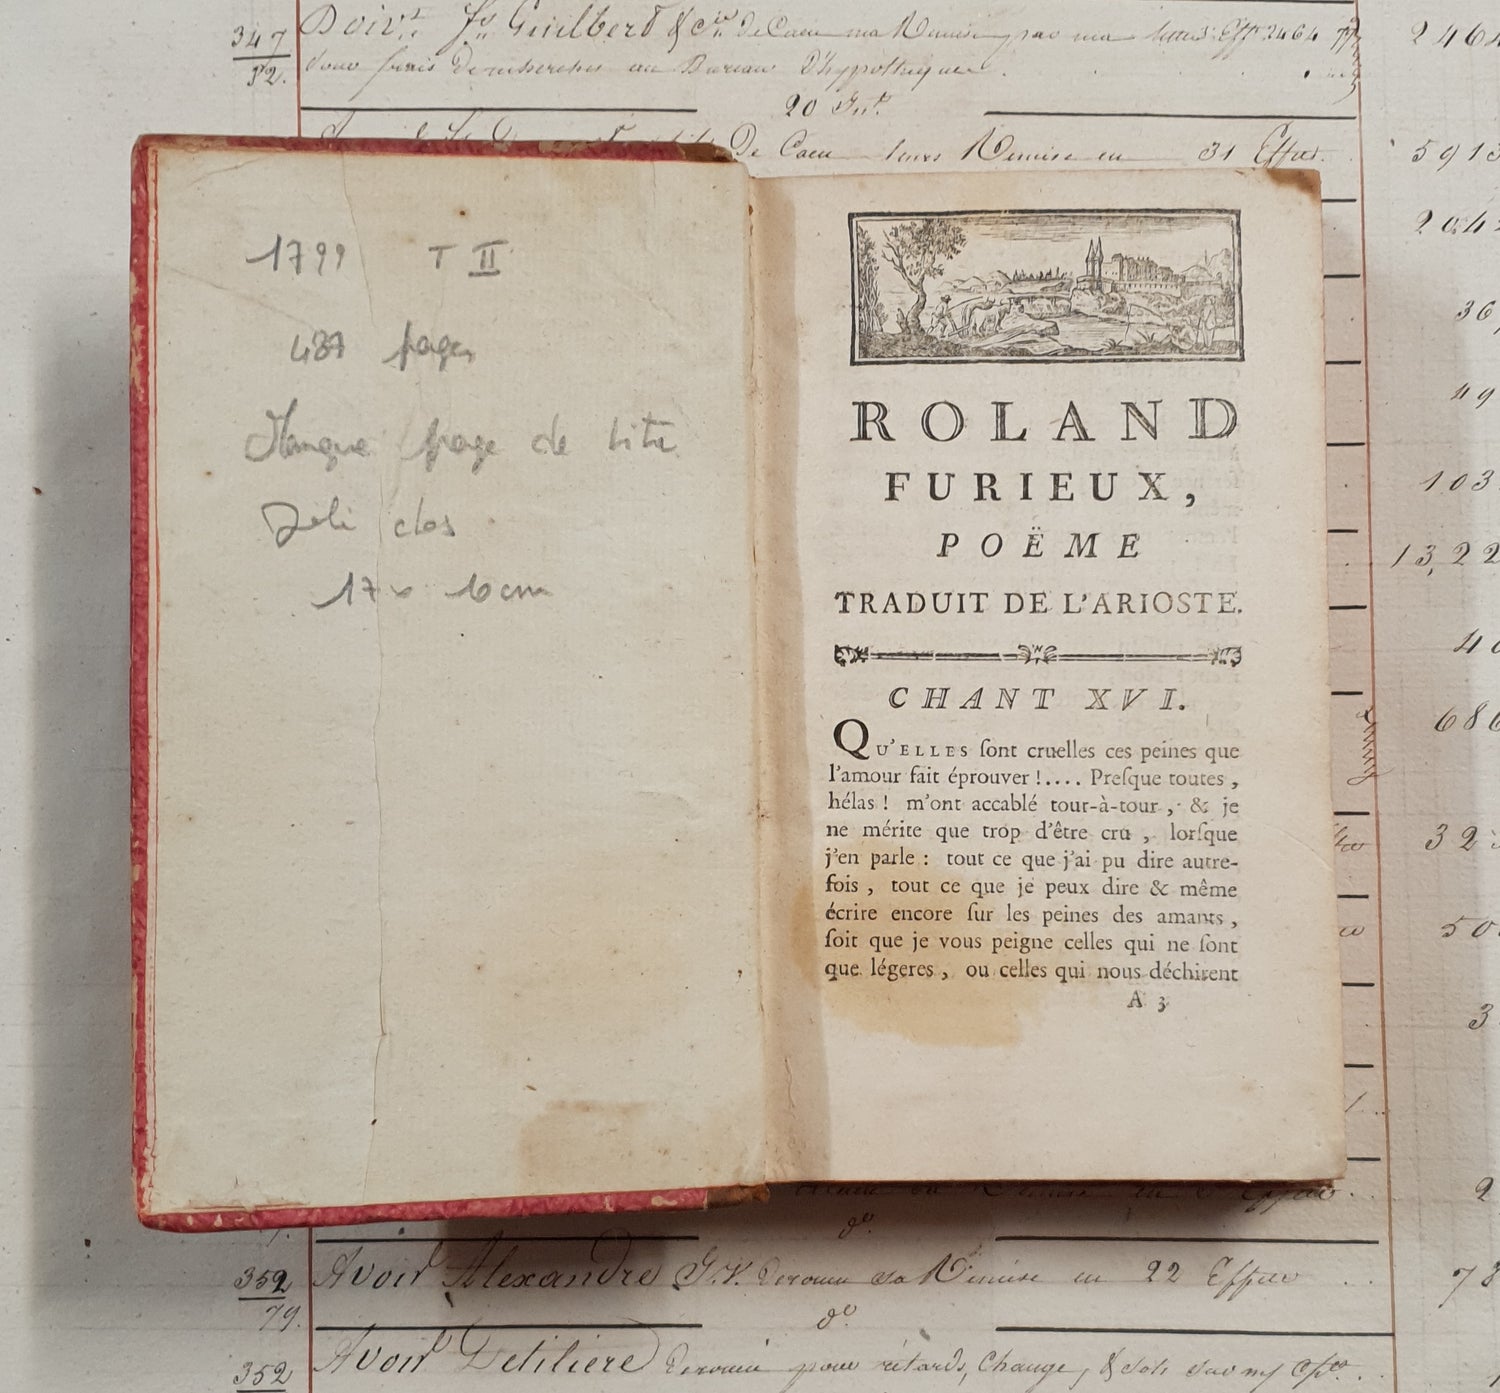 347
52.
Doiv.t Guilbert & Cie de Caen ma Remise par ma lettre 2464
pour frais de recherches au Bureau d'hypothèques
20
De Caen leurs Remise en 31 Effets.
1799 T II
487 pages
Manque page de titre
Joli dos
17 x 10 cm
ROLAND
FURIEUX,
POËME
TRADUIT DE L'ARIOSTE.
CHANT XVI.
QU'ELLES ſont cruelles ces peines que
l'amour fait éprouver !.... Preſque toutes ,
hélas ! m'ont accablé tour-à-tour , & je
ne mérite que trop d'être cru , lorſque
j'en parle : tout ce que j'ai pu dire autre-
fois , tout ce que je peux dire & même
écrire encore ſur les peines des amants ,
ſoit que je vous peigne celles qui ne ſont
que légeres , ou celles qui nous déchirent
A 3
2464
5913
36
49
103
13,22
40
686
32
50
3
2
do
352
79.
Avoir Alexandre sa Remise en 22 Effets
78
do
352
Avoir Detiliere pour retards, Change, &